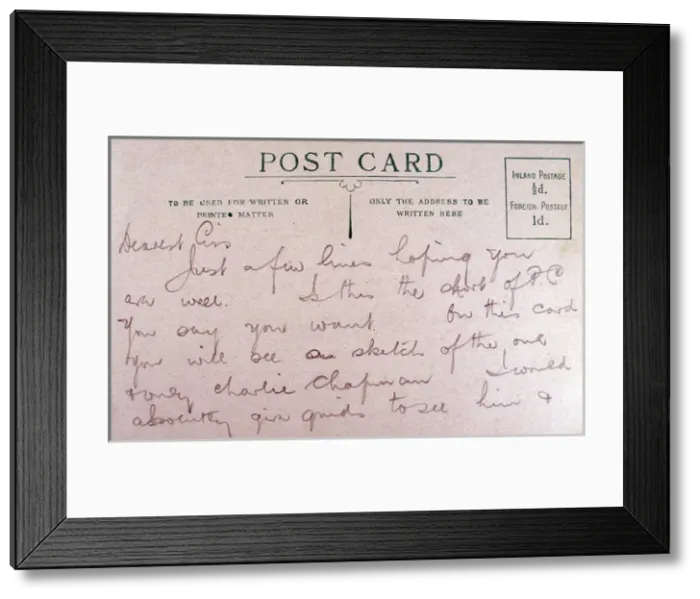 POST CARD
TO BE USED FOR WRITTEN OR
PRINTED MATTER
ONLY THE ADDRESS TO BE
WRITTEN HERE
INLAND POSTAGE
½d.
FOREIGN POSTAGE
1d.
Dearest Cis
Just a few lines hoping you
are well. Is this the short of P C
you say you want. On this card
you will see a sketch of the one
& only Charlie Chapman I would
absolutely give quids to see him &